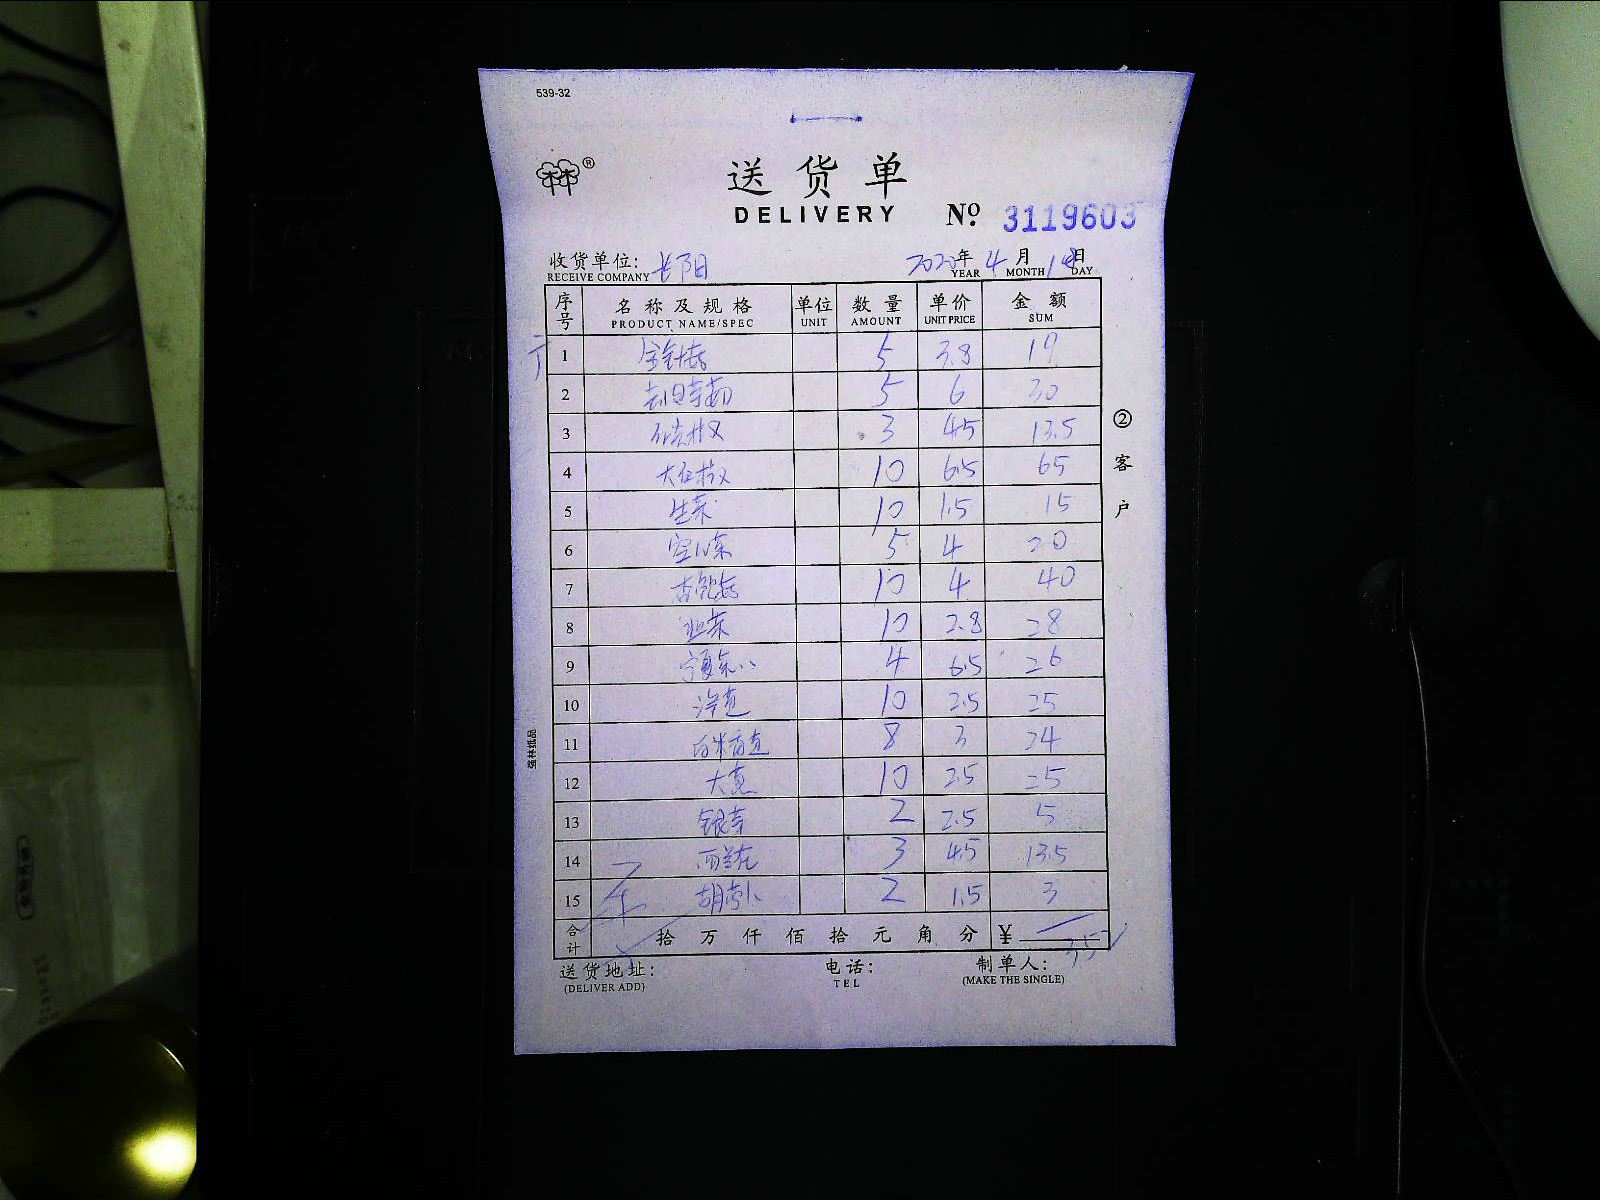 539-32
送货单
DELIVERY № 3119603
收货单位: 长阳 2020年 4月 日
RECEIVE COMPANY YEAR MONTH DAY
序号 名称及规格 单位 数量 单价 金额
PRODUCT NAME/SPEC UNIT AMOUNT UNIT PRICE SUM
1 金针菇 5 3.8 19
2 5 6 30
3 3 4.5 13.5
4 大红椒 10 6.5 65
5 生菜 10 1.5 15
6 空心菜 5 4 20
7 杏鲍菇 10 4 40
8 10 2.8 28
9 宁夏菜心 4 6.5 26
10 洋葱 10 2.5 25
11 8 3 24
12 大葱 10 2.5 25
13 银芽 2 2.5 5
14 西兰花 3 4.5 13.5
15 胡萝卜 2 1.5 3
合计 拾万仟佰拾元角分 ¥
送货地址: 电话: 制单人:
(DELIVER ADD) TEL (MAKE THE SINGLE)
②客户
强林纸品